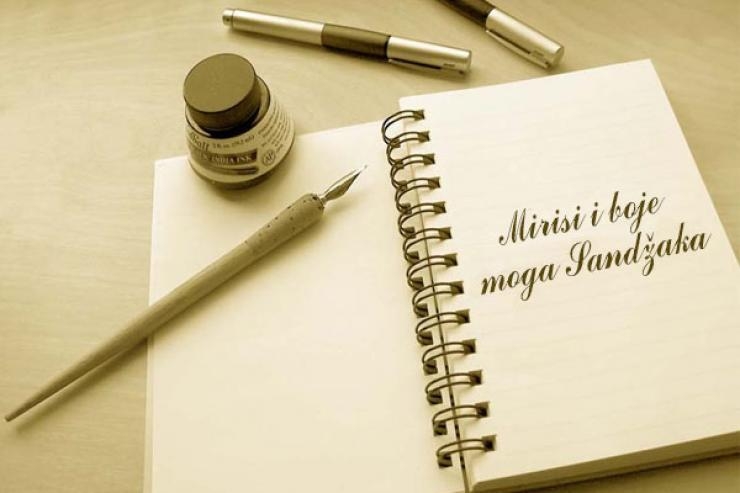 INDIA INK
Mirisi i boje
moga Sandžaka